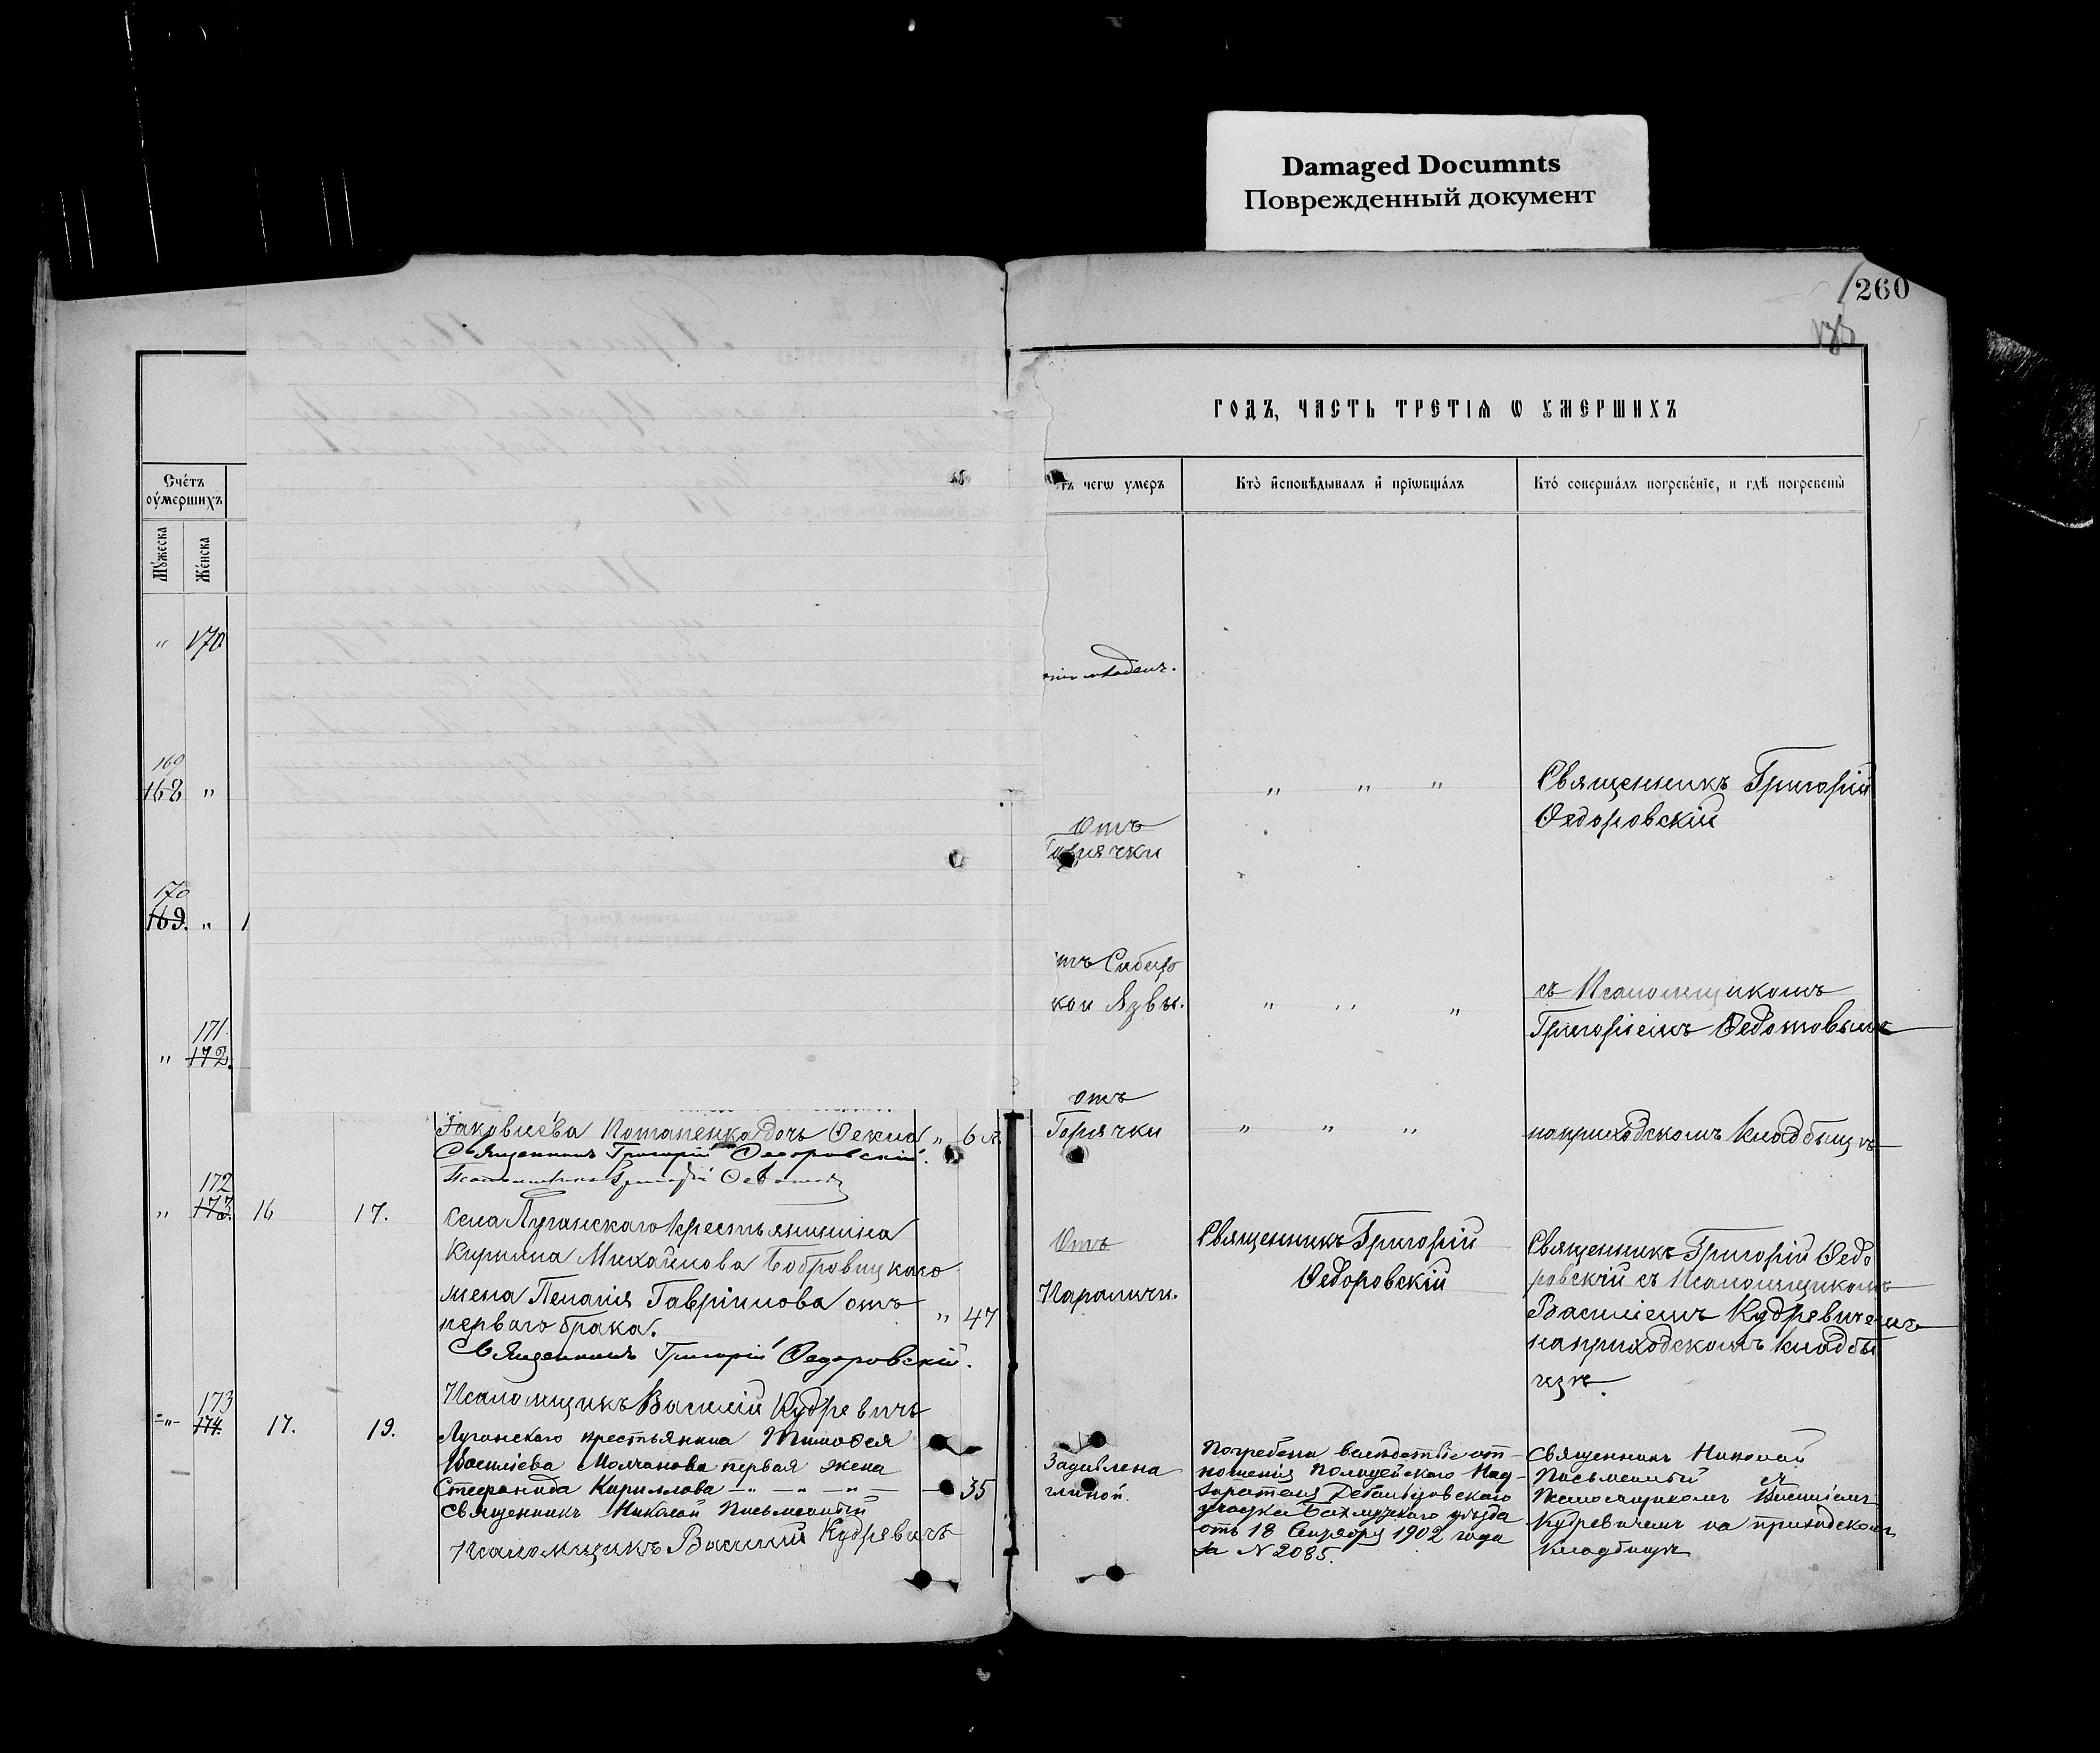 Damaged Documnts
Поврежденный документ
260
годъ, часть третїѧ ѡ ᲂумершихъ
Счетъ
ᲂумершихъ
Мужеска
Женска
чегѡ умеръ
Кто исповѣдывалъ и прїѡбщалъ
Кто совершалъ погребенїе, и гдѣ погребены
" 170
младенч.
169
168 "
" " "
Священникъ Григорій
Ѳедоровскій
Отъ
Горячки
170
169. "
Сибир
кой Язвы.
" " "
съ Псаломщикомъ
Григоріемъ Ѳедотовымъ
171
" 172.
отъ
Яковлева Потапенко дочь Ѳекла " 6 л.
Горячки
" " "
на приходскомъ кладбищѣ
Священникъ Григорій Ѳедоровскій.
Псаломщикъ Григорій Ѳедотовъ
172
" 173. 16 17.
Села Луганскаго крестьянина
Кирилла Михайлова Бобровицкаго
жена Пелагія Гавріилова отъ
перваго брака. " 47
Отъ
Параличи.
Священникъ Григорій
Ѳедоровскій
Священникъ Григорій Ѳедо
ровскій съ Псаломщикомъ
Василіемъ Кудревичемъ
на приходскомъ кладби
щѣ.
Священникъ Григорій Ѳедоровскій.
Псаломщикъ Василій Кудревичъ
173
-"- 174. 17. 19.
Луганскаго крестьянина Тимоѳея
Василіева Молчанова первая жена
Стефанида Кириллова — " — " — " — 35
Задавлена
глиной.
Погребена вслѣдствіе от-
ношенія Полицейскаго Над-
зирателя Дебальцовскаго
участка Бахмутскаго уѣзда
отъ 18 Сентября 1902 года
за N 2085.
Священникъ Николай
Письменный съ
Псаломщикомъ Василіемъ
Кудревичемъ на приходскомъ
кладбищѣ
Священникъ Николай Письменный
Псаломщикъ Василій Кудревичъ